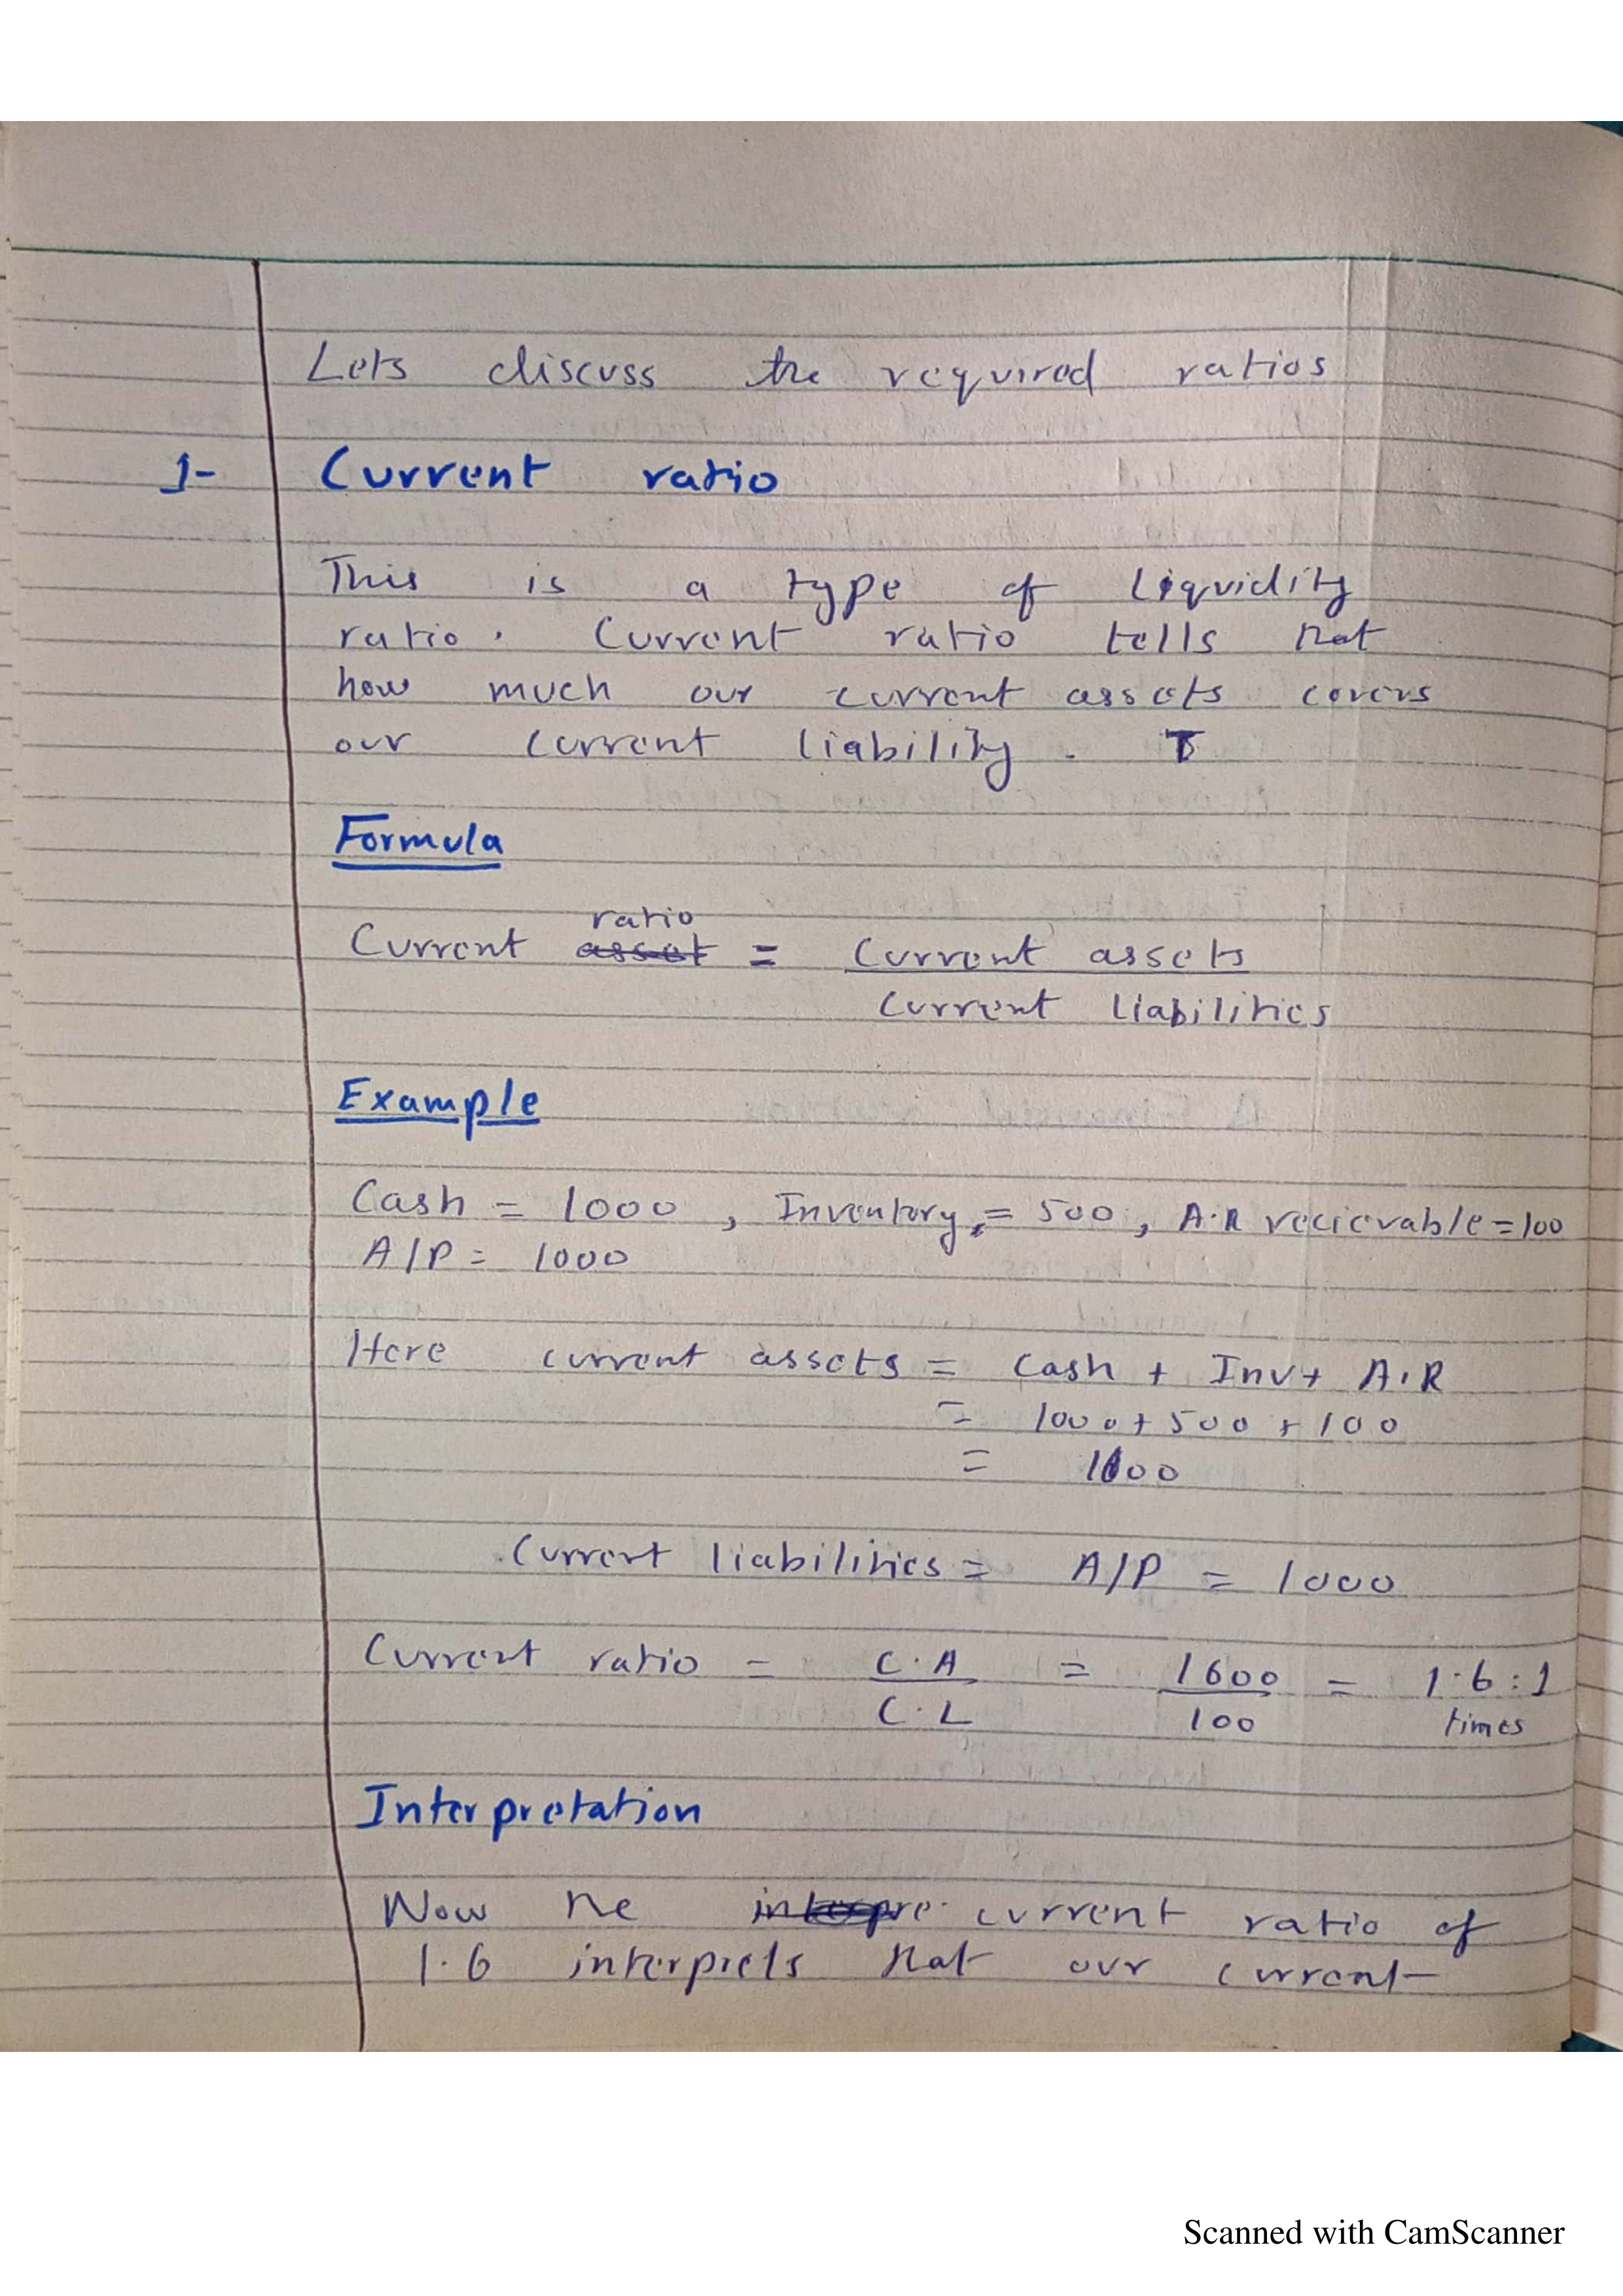 Lets discuss the required ratios
1- Current ratio
This is a type of liquidity
ratio. Current ratio tells that
how much our current assets covers
our current liability. T
Formula
ratio
Current asset = Current assets
Current liabilities
Example
Cash = 1000, Inventory = 500, A.R recievable = 100
A/P = 1000
Here current assets = Cash + Inv + A.R
= 1000 + 500 + 100
= 1600
Current liabilities = A/P = 1000
Current ratio = C.A = 1600 = 1.6:1
C.L 100 times
Interpretation
Now the current ratio of
1.6 interprets that our current
Scanned with CamScanner